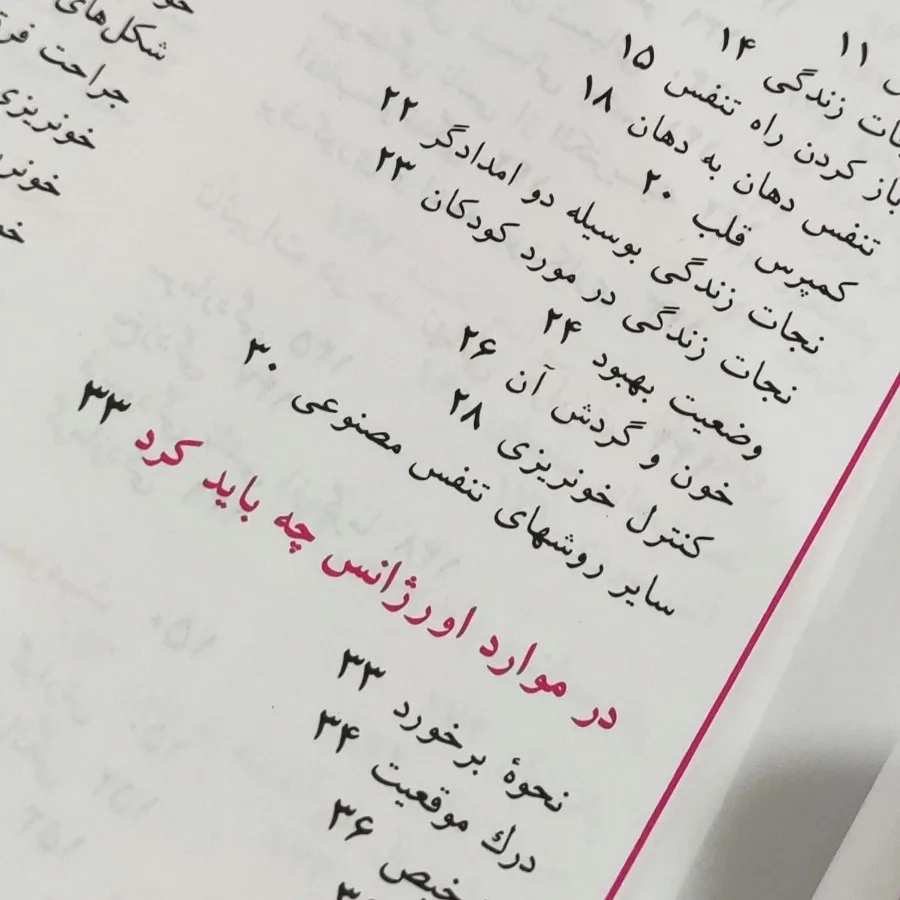 ۱۱
زندگی ۱۴
باز کردن راه تنفس ۱۵
تنفس دهان به دهان ۱۸
کمپرس قلب ۲۰
نجات زندگی بوسیله دو امدادگر ۲۲
نجات زندگی در مورد کودکان ۲۳
وضعیت بهبود ۲۴
خون و گردش آن ۲۶
کنترل خونریزی ۲۸
سایر روشهای تنفس مصنوعی ۳۰
در موارد اورژانس چه باید کرد ۳۳
نحوهٔ برخورد ۳۳
درك موقعیت ۳۴
۳۶
شکل‌های
جراحت
خونریزی